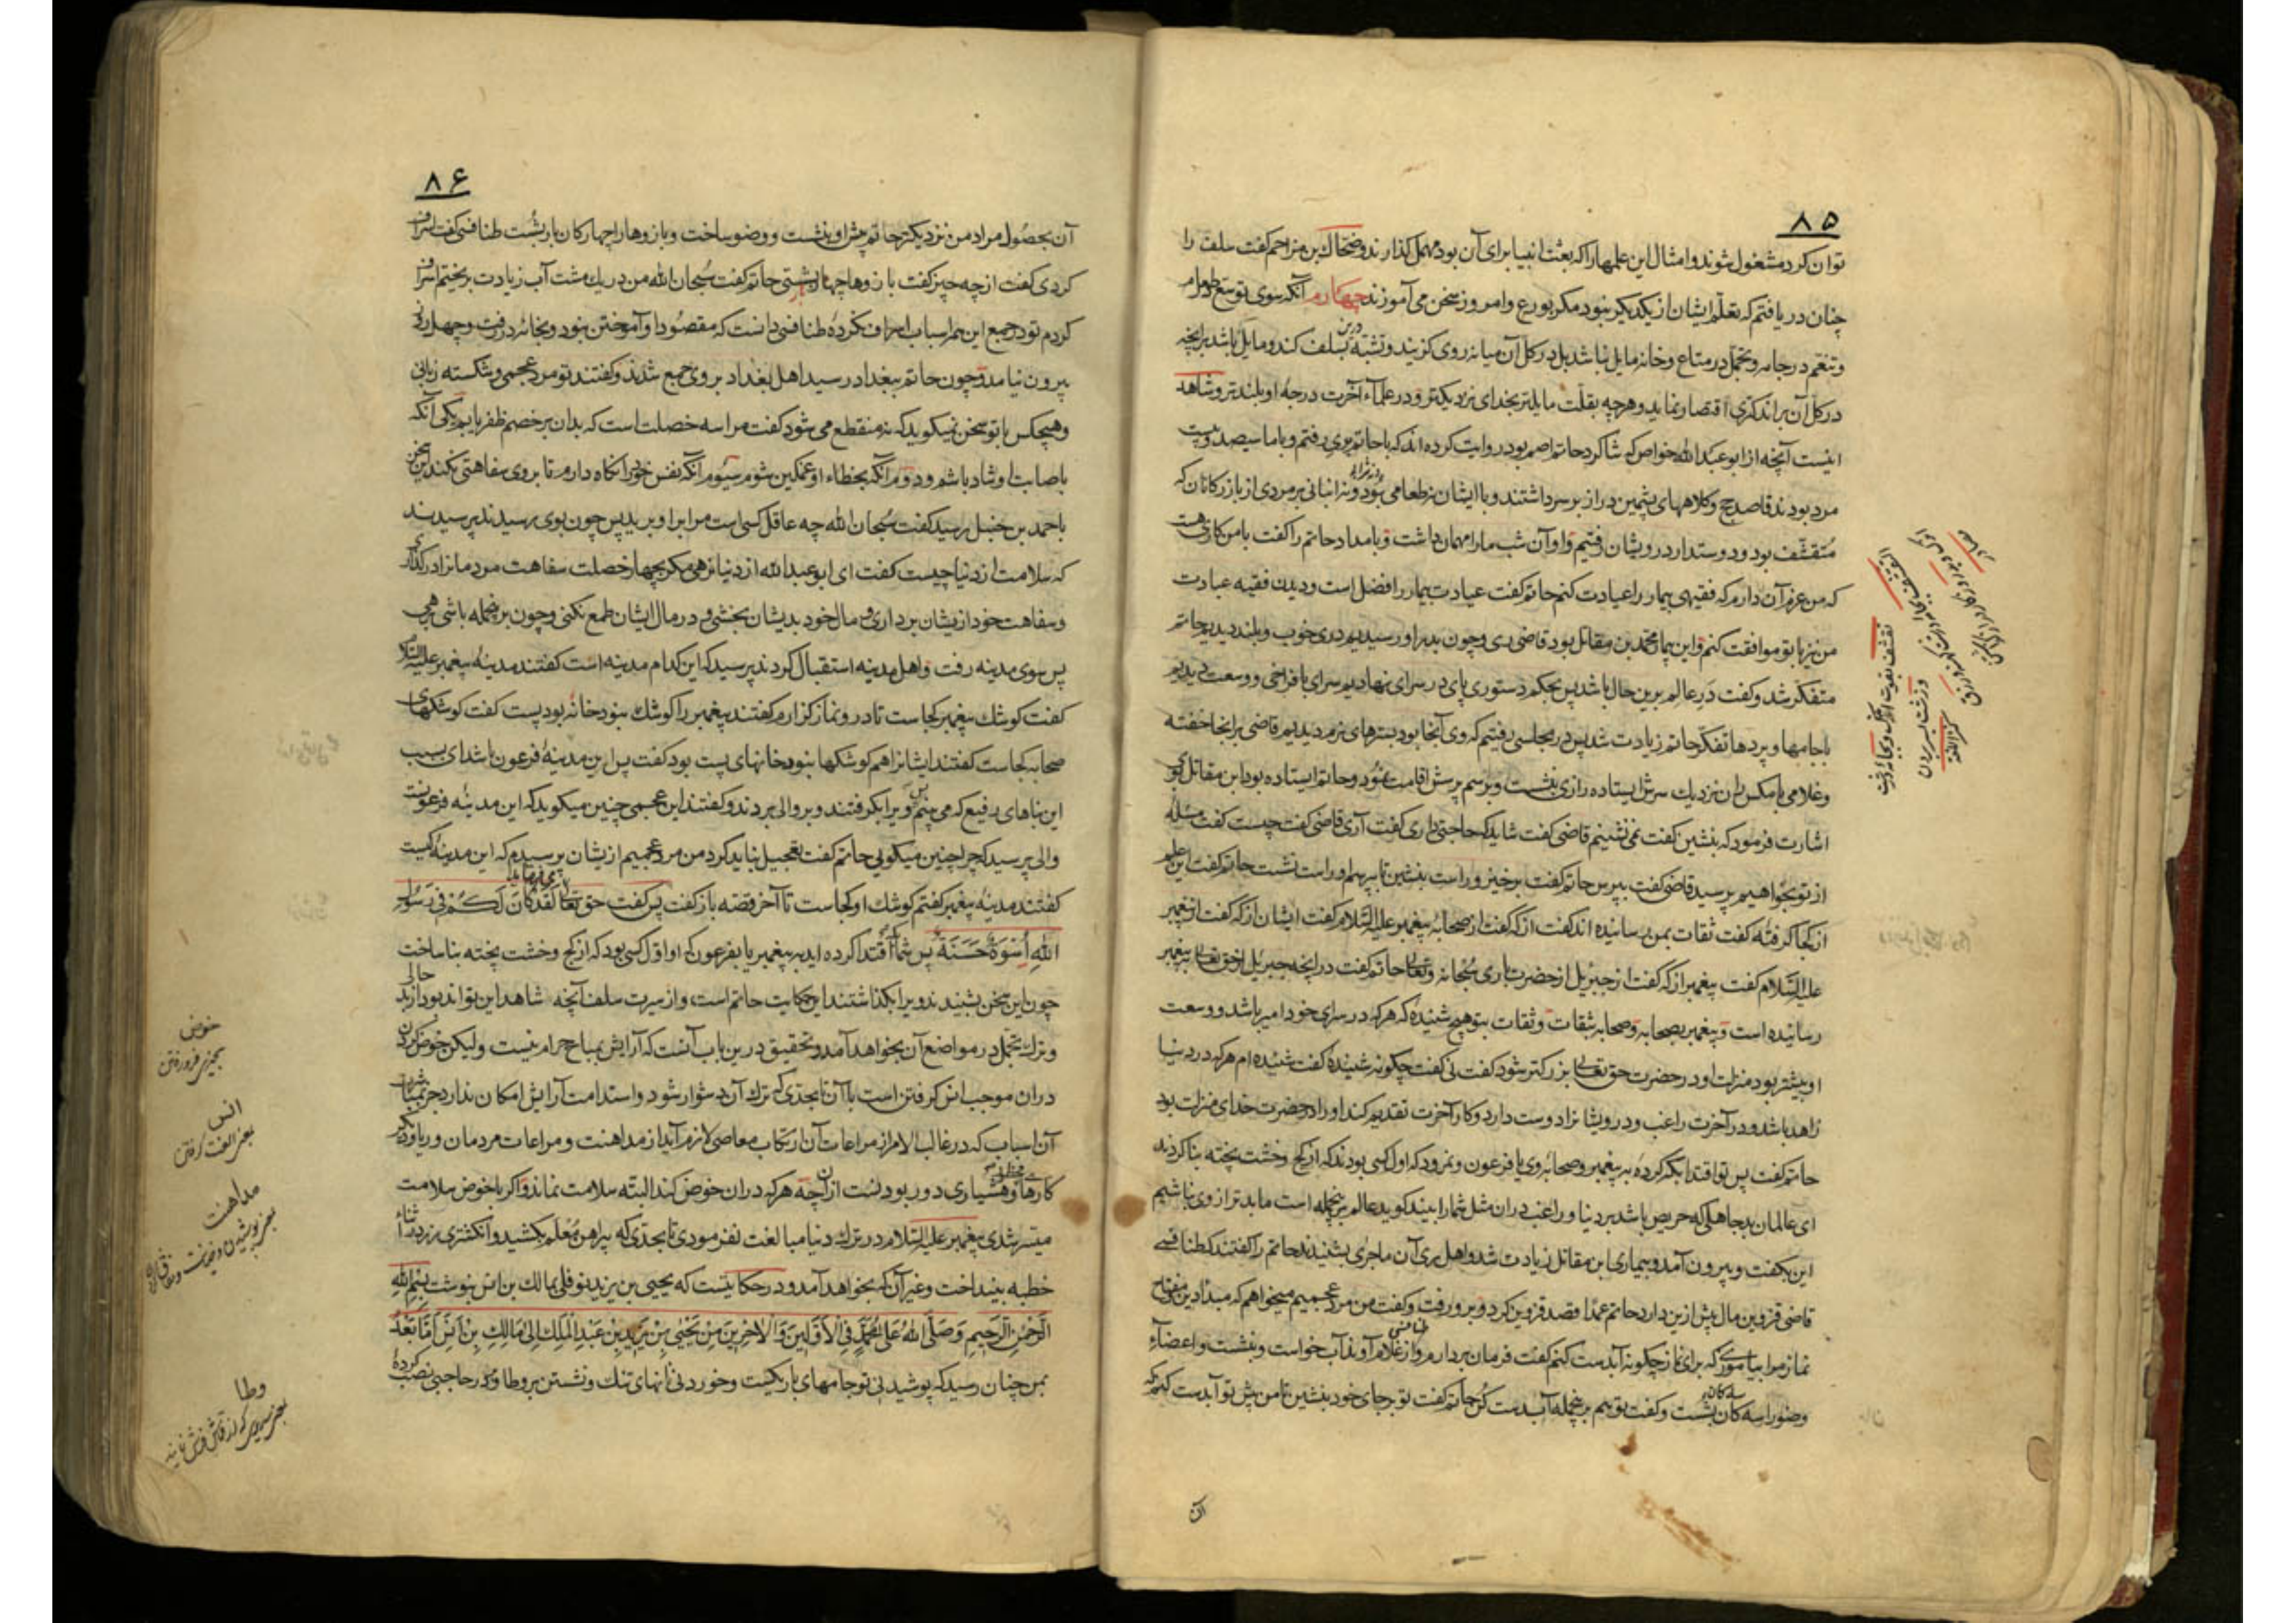 ۸۵
توان کرد مشغول شوند و امثال این علمها را که بعثت انبیا برای آن بود مهمل گذارند و ضحاک بن مزاحم گفت سلف را
چنان دریافتم که تعلّم ایشان از یکدیگر نبود مگر بورع و امروز سخن می آموزند چهارم آنکه سوی توسّع طعام
و تنعّم در جامه و تجمّل در متاع و خانه مایل نباشد بل در کل آن میانه روی گزیند و تشبّه درین بسلف کند و مایل باشد بر آنچه
در کل آن بر اندکتری اقتصار نماید و هرچه بقلّت مایلتر بخدای نزدیکتر و در علماء آخرت درجهٔ او بلندتر و شاهد
اینست آنچه از ابو عبد الله خواص که شاکرد حاتم اصم بود روایت کرده اند که با حاتم بری رفتم و با ما سیصد و بیست
مرد بودند قاصد حج و کلاههای پشمین دراز بر سر داشتند و با ایشان نه طعامی بود و نه انبانی بر مردی از بازرکانان که
متقشّف بود و دوستدار درویشان رفتیم و او آن شب ما را مهمان داشت و بامداد حاتم را گفت با من کاری هست
که من عزم آن دارم که فقیهی بیمار را عیادت کنم حاتم گفت عیادت بیمار را فضل است و دیدن فقیه عبادت
من نیز با تو موافقت کنم و این بیمار محمد بن مقاتل بود قاضی ری و چون بدر او رسیدیم دری خوب و بلند دیدیم حاتم
متفکر شد و گفت در عالم برین حال باشد پس بحکم دستوری پای در سرای نهادیم سرای با فراخی و وسعت دیدیم
با جامها و پردها تفکّر حاتم زیادت شد پس در مجلسی رفتیم که وی آنجا بود بسترهای نرم دیدیم قاضی بر آنجا خفته
و غلامی با مکس ران نزدیک سرش ایستاده رازی بنشست و برسم پرسش اقامت نمود و حاتم ایستاده بود ابن مقاتل بوی
اشارت فرمود که بنشین گفت نمی نشینم قاضی گفت شاید که حاجتی داری گفت آری قاضی گفت چیست گفت مسئله
از تو بخواهیم پرسید قاضی گفت بپرس حاتم گفت برخیز و راست بنشین تا بپرسم او راست نشست حاتم گفت این علم
از کجا گرفته گفت ثقات بمن رسانیده اند گفت از که گفت از صحابهٔ پیغمبر علیه السّلام گفت ایشان از که گفت از پیغمبر
علیه السّلام گفت پیغمبر از که گفت از جبرئیل از حضرت باری سبحانه و تعالی حاتم گفت در آنچه جبریل از حق تعالی به پیغمبر
رسانیده است و پیغمبر بصحابه و صحابه بثقات و ثقات بتو هیچ شنیدهٔ که هر که در سرای خود امیر باشد و وسعت
او بیشتر بود منزلت او در حضرت حق تعالی بزرکتر شود گفت نی گفت چگونه شنیدهٔ گفت شنیده ام هر که در دنیا
زاهد باشد و در آخرت راغب و درویشانرا دوست دارد و کار آخرت تقدیم کند او را در حضرت خدای منزلت بود
حاتم گفت پس تو اقتدا بکه کردهٔ به پیغمبر و صحابهٔ وی یا فرعون و نمرود که اول کسی بودند که از گچ و خشت پخته بنا کردند
ای عالمان بد جاهلی که حریص باشد بر دنیا و راغب در آن مثل شما را بیند کوید عالم برین جمله است ما بدتر از وی نباشیم
این بکفت و بیرون آمد و بیماری ابن مقاتل زیادت شد و اهل ری آن ماجرای بشنیدند حاتم را گفتند که طنافسی
قاضی قزوین مال بیش ازین دارد حاتم عمدا قصد قزوین کرد و برو رفت و گفت من مرد عجمیم میخواهم که مبدأ دین و مفتاح
نماز مرا بیاموزی که برای نماز چگونه آبدست کنم گفت فرمان بردارم و از غلام آوند آب خواست و بنشست و اعضاء
وضو را سه کان بشست و گفت تو هم برین جمله آبدست کن حاتم گفت تو بر جای خود بنشین تا من پیش تو آبدست کنم که
آن
۸۶
آن بحصول مراد من نزدیکتر حاتم پیش او بنشست و وضو ساخت و بازوها را چهارکان بار بشست طنافسی گفت اسراف
کردی گفت از چه چیز گفت بازوها چهار بار بشستی حاتم گفت سبحان الله من در یک مشت آب زیادت بریختم اسراف
کردم تو در جمیع این همه اسباب اسراف نکردهٔ طنافسی دانست که مقصود او آموختن نبود و بخانه در رفت و چهل روز
بیرون نیامد و چون حاتم ببغداد رسید اهل بغداد بر وی جمع شدند و گفتند تو مرد عجمی و شکسته زبانی
و هیچکس با تو سخن نمیگوید که نه منقطع می شود گفت مرا سه خصلت است که بدان بر خصم ظفر یابم یکی آنکه
باصابت او شاد باشم و دوم آنکه بخطاء او غمکین شوم سیوم آنکه نفس خود را نکاه دارم تا بر وی سفاهتی نکند این سخن
باحمد بن حنبل رسید گفت سبحان الله چه عاقل کسی است مرا بر او برید پس چون بوی رسیدند پرسیدند
که سلامت از دنیا چیست گفت ای ابو عبد الله از دنیا نرهی مگر بچهار خصلت سفاهت مردمان درگذاری
و سفاهت خود از یشان برداری و مال خود بدیشان بخشی و در مال ایشان طمع نکنی و چون برین جمله باشی برهی
پس سوی مدینه رفت و اهل مدینه استقبال کردند پرسید که این کدام مدینه است گفتند مدینهٔ پیغمبر علیه السلام
گفت کوشک پیغمبر کجاست تا در و نماز کزارم گفتند پیغمبر را کوشک نبود خانهٔ بود پست گفت کوشکهای
صحابه کجاست گفتند ایشانرا هم کوشکها نبود خانهای پست بود گفت پس این مدینهٔ فرعون باشد ای بسبب
این بناهای رفیع که می بینم پس ویرا بکرفتند و بر والی بردند و گفتند این عجمی چنین میکوید که این مدینهٔ فرعونست
والی پرسید که چرا چنین میگویی حاتم گفت تعجیل نباید کرد من مرد عجمیم از یشان پرسیدم که این مدینهٔ کیست
گفتند مدینهٔ پیغمبر گفتم کوشک او کجاست تا آخر قصه باز گفت پس گفت حق تعالی می فرماید لَقَدْ كَانَ لَكُمْ فِي رَسُولِ
اللهِ أُسْوَةٌ حَسَنَةٌ پس شما اقتدا کرده اید به پیغمبر یا بفرعون که او اول کسی بود که از گچ و خشت پخته بنا ساخت
چون این سخن بشنیدند ویرا بکذاشتند این حکایت حاتم است، و از سیرت سلف آنچه شاهد این تواند بود از بد حالی
و ترک تجمّل در مواضع آن بخواهد آمد و تحقیق درین باب آنست که آرایش بمباح حرام نیست ولیکن خوض کردن
در ان موجب انس کرفتن است با آن تا بحدّی که ترک آن دشوار شود و استدامت آرایش امکان ندارد جز بمباشرت
آن اسباب که در غالب الامر از مراعات آن ارتکاب معاصی لازم آید از مداهنت و مراعات مردمان و ریا و دیگر
کارهای محظور و هشیاری دور بودنست از آنچه هر که در ان خوض کند البته سلامت نماند و اکر با خوض سلامت
میسر شدی پیغمبر علیه السّلام در ترک دنیا مبالغت نفرمودی تا بحدّی که پیراهن مُعْلَم بکشید و انکشتری زر در اثناء
خطبه بینداخت و غیر آن که بخواهد آمد و در حکایتست که یحیی بن یزید نوفلی بمالک بن انس بنوشت بِسْمِ اللهِ
الرَّحْمٰنِ الرَّحِيمِ وَصَلَّى اللهُ عَلَى مُحَمَّدٍ فِي الْأَوَّلِينَ وَالْآخِرِينَ مِنْ يَحْيَى بْنِ يَزِيدَ بْنِ عَبْدِ الْمَلِكِ إِلَى مَالِكِ بْنِ أَنَسٍ أَمَّا بَعْدُ
بمن چنان رسید که پوشیدنی تو جامهای باریکست و خوردنی نانهای تنک و نشستن بر وطا و بر در حاجبی نصب کردهٔ
خوض
بچیزی فرو رفتن
انس
بمعنی الفت کرفتن
مداهنت
وطا